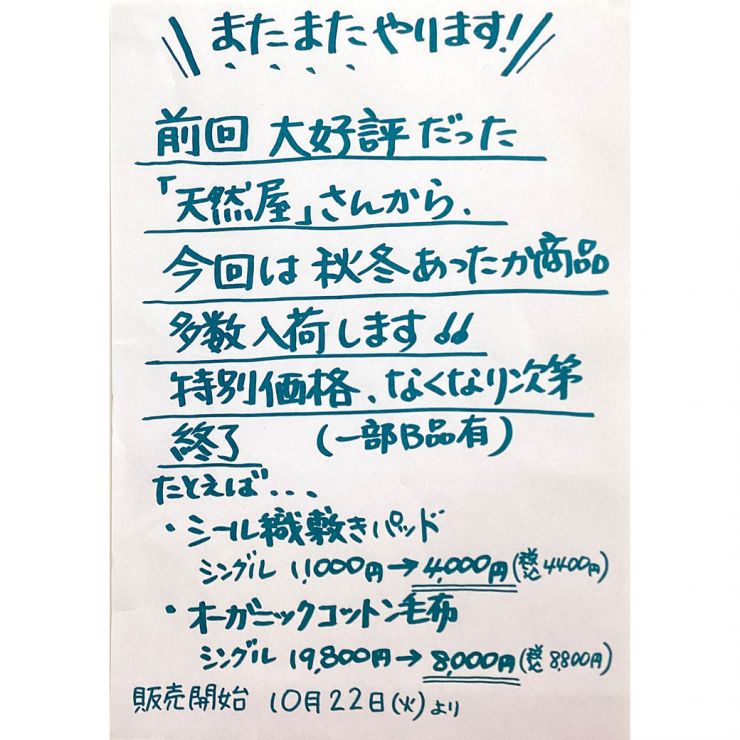 またまたやります!
前回 大好評だった
「天然屋」さんから、
今回は 秋冬あったか商品
多数入荷します!!
特別価格、なくなり次第
終了 (一部B品有)
たとえば...
・シール織敷きパッド
シングル 11,000円→4,000円(税込4400円)
・オーガニックコットン毛布
シングル 19,800円→8,000円(税込8,800円)
販売開始 10月22日(火)より